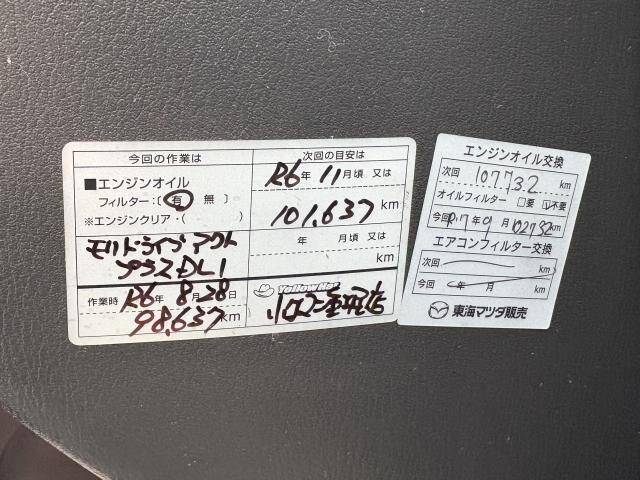 今回の作業は
■エンジンオイル
フィルター:〔有 無 〕
※エンジンクリア・( )
モリドライブ アクト
プラス DL1
作業時 R6年 8月28日
98,637km
次回の目安は
R6年 11月頃 又は
101,637
年 月頃 又は
km
YellowHat
エンジンオイル交換
次回 107732 km
オイルフィルター □要 ☑不要
今回 R7年9月 102732km
エアコンフィルター交換
次回 km
今回 年 月 km
東海マツダ販売